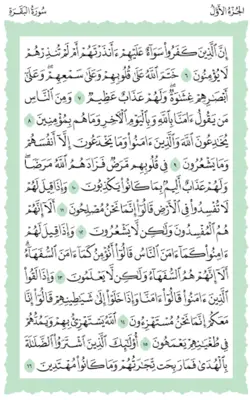 الجُزْءُ الأَوَّلُ سُورَةُ البَقَرَةِ
إِنَّ ٱلَّذِينَ كَفَرُوا۟ سَوَآءٌ عَلَيْهِمْ ءَأَنذَرْتَهُمْ أَمْ لَمْ تُنذِرْهُمْ
لَا يُؤْمِنُونَ ٦ خَتَمَ ٱللَّهُ عَلَىٰ قُلُوبِهِمْ وَعَلَىٰ سَمْعِهِمْ ۖ وَعَلَىٰٓ
أَبْصَٰرِهِمْ غِشَٰوَةٌ ۖ وَلَهُمْ عَذَابٌ عَظِيمٌ ٧ وَمِنَ ٱلنَّاسِ
مَن يَقُولُ ءَامَنَّا بِٱللَّهِ وَبِٱلْيَوْمِ ٱلْءَاخِرِ وَمَا هُم بِمُؤْمِنِينَ ٨
يُخَٰدِعُونَ ٱللَّهَ وَٱلَّذِينَ ءَامَنُوا۟ وَمَا يَخْدَعُونَ إِلَّآ أَنفُسَهُمْ
وَمَا يَشْعُرُونَ ٩ فِى قُلُوبِهِم مَّرَضٌ فَزَادَهُمُ ٱللَّهُ مَرَضًا ۖ
وَلَهُمْ عَذَابٌ أَلِيمٌۢ بِمَا كَانُوا۟ يَكْذِبُونَ ١٠ وَإِذَا قِيلَ لَهُمْ
لَا تُفْسِدُوا۟ فِى ٱلْأَرْضِ قَالُوٓا۟ إِنَّمَا نَحْنُ مُصْلِحُونَ ١١ أَلَآ إِنَّهُمْ
هُمُ ٱلْمُفْسِدُونَ وَلَٰكِن لَّا يَشْعُرُونَ ١٢ وَإِذَا قِيلَ لَهُمْ
ءَامِنُوا۟ كَمَآ ءَامَنَ ٱلنَّاسُ قَالُوٓا۟ أَنُؤْمِنُ كَمَآ ءَامَنَ ٱلسُّفَهَآءُ ۗ
أَلَآ إِنَّهُمْ هُمُ ٱلسُّفَهَآءُ وَلَٰكِن لَّا يَعْلَمُونَ ١٣ وَإِذَا لَقُوا۟
ٱلَّذِينَ ءَامَنُوا۟ قَالُوٓا۟ ءَامَنَّا وَإِذَا خَلَوْا۟ إِلَىٰ شَيَٰطِينِهِمْ قَالُوٓا۟ إِنَّا
مَعَكُمْ إِنَّمَا نَحْنُ مُسْتَهْزِءُونَ ١٤ ٱللَّهُ يَسْتَهْزِئُ بِهِمْ وَيَمُدُّهُمْ
فِى طُغْيَٰنِهِمْ يَعْمَهُونَ ١٥ أُو۟لَٰٓئِكَ ٱلَّذِينَ ٱشْتَرَوُا۟ ٱلضَّلَٰلَةَ
بِٱلْهُدَىٰ فَمَا رَبِحَت تِّجَٰرَتُهُمْ وَمَا كَانُوا۟ مُهْتَدِينَ ١٦